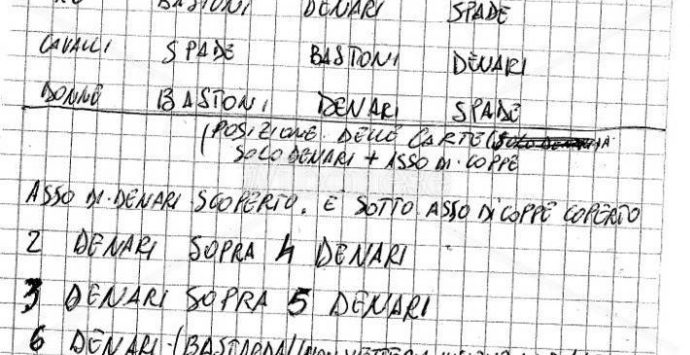 BASTONI DENARI SPADE
CAVALLI SPADE BASTONI DENARI
DONNE BASTONI DENARI SPADE
(POSIZIONE DELLE CARTE
SOLO DENARI + ASSO DI COPPE
ASSO DI DENARI SCOPERTO. E SOTTO ASSO DI COPPE COPERTO
2 DENARI SOPRA 4 DENARI
3 DENARI SOPRA 5 DENARI
6 DENARI (BASTARDA)